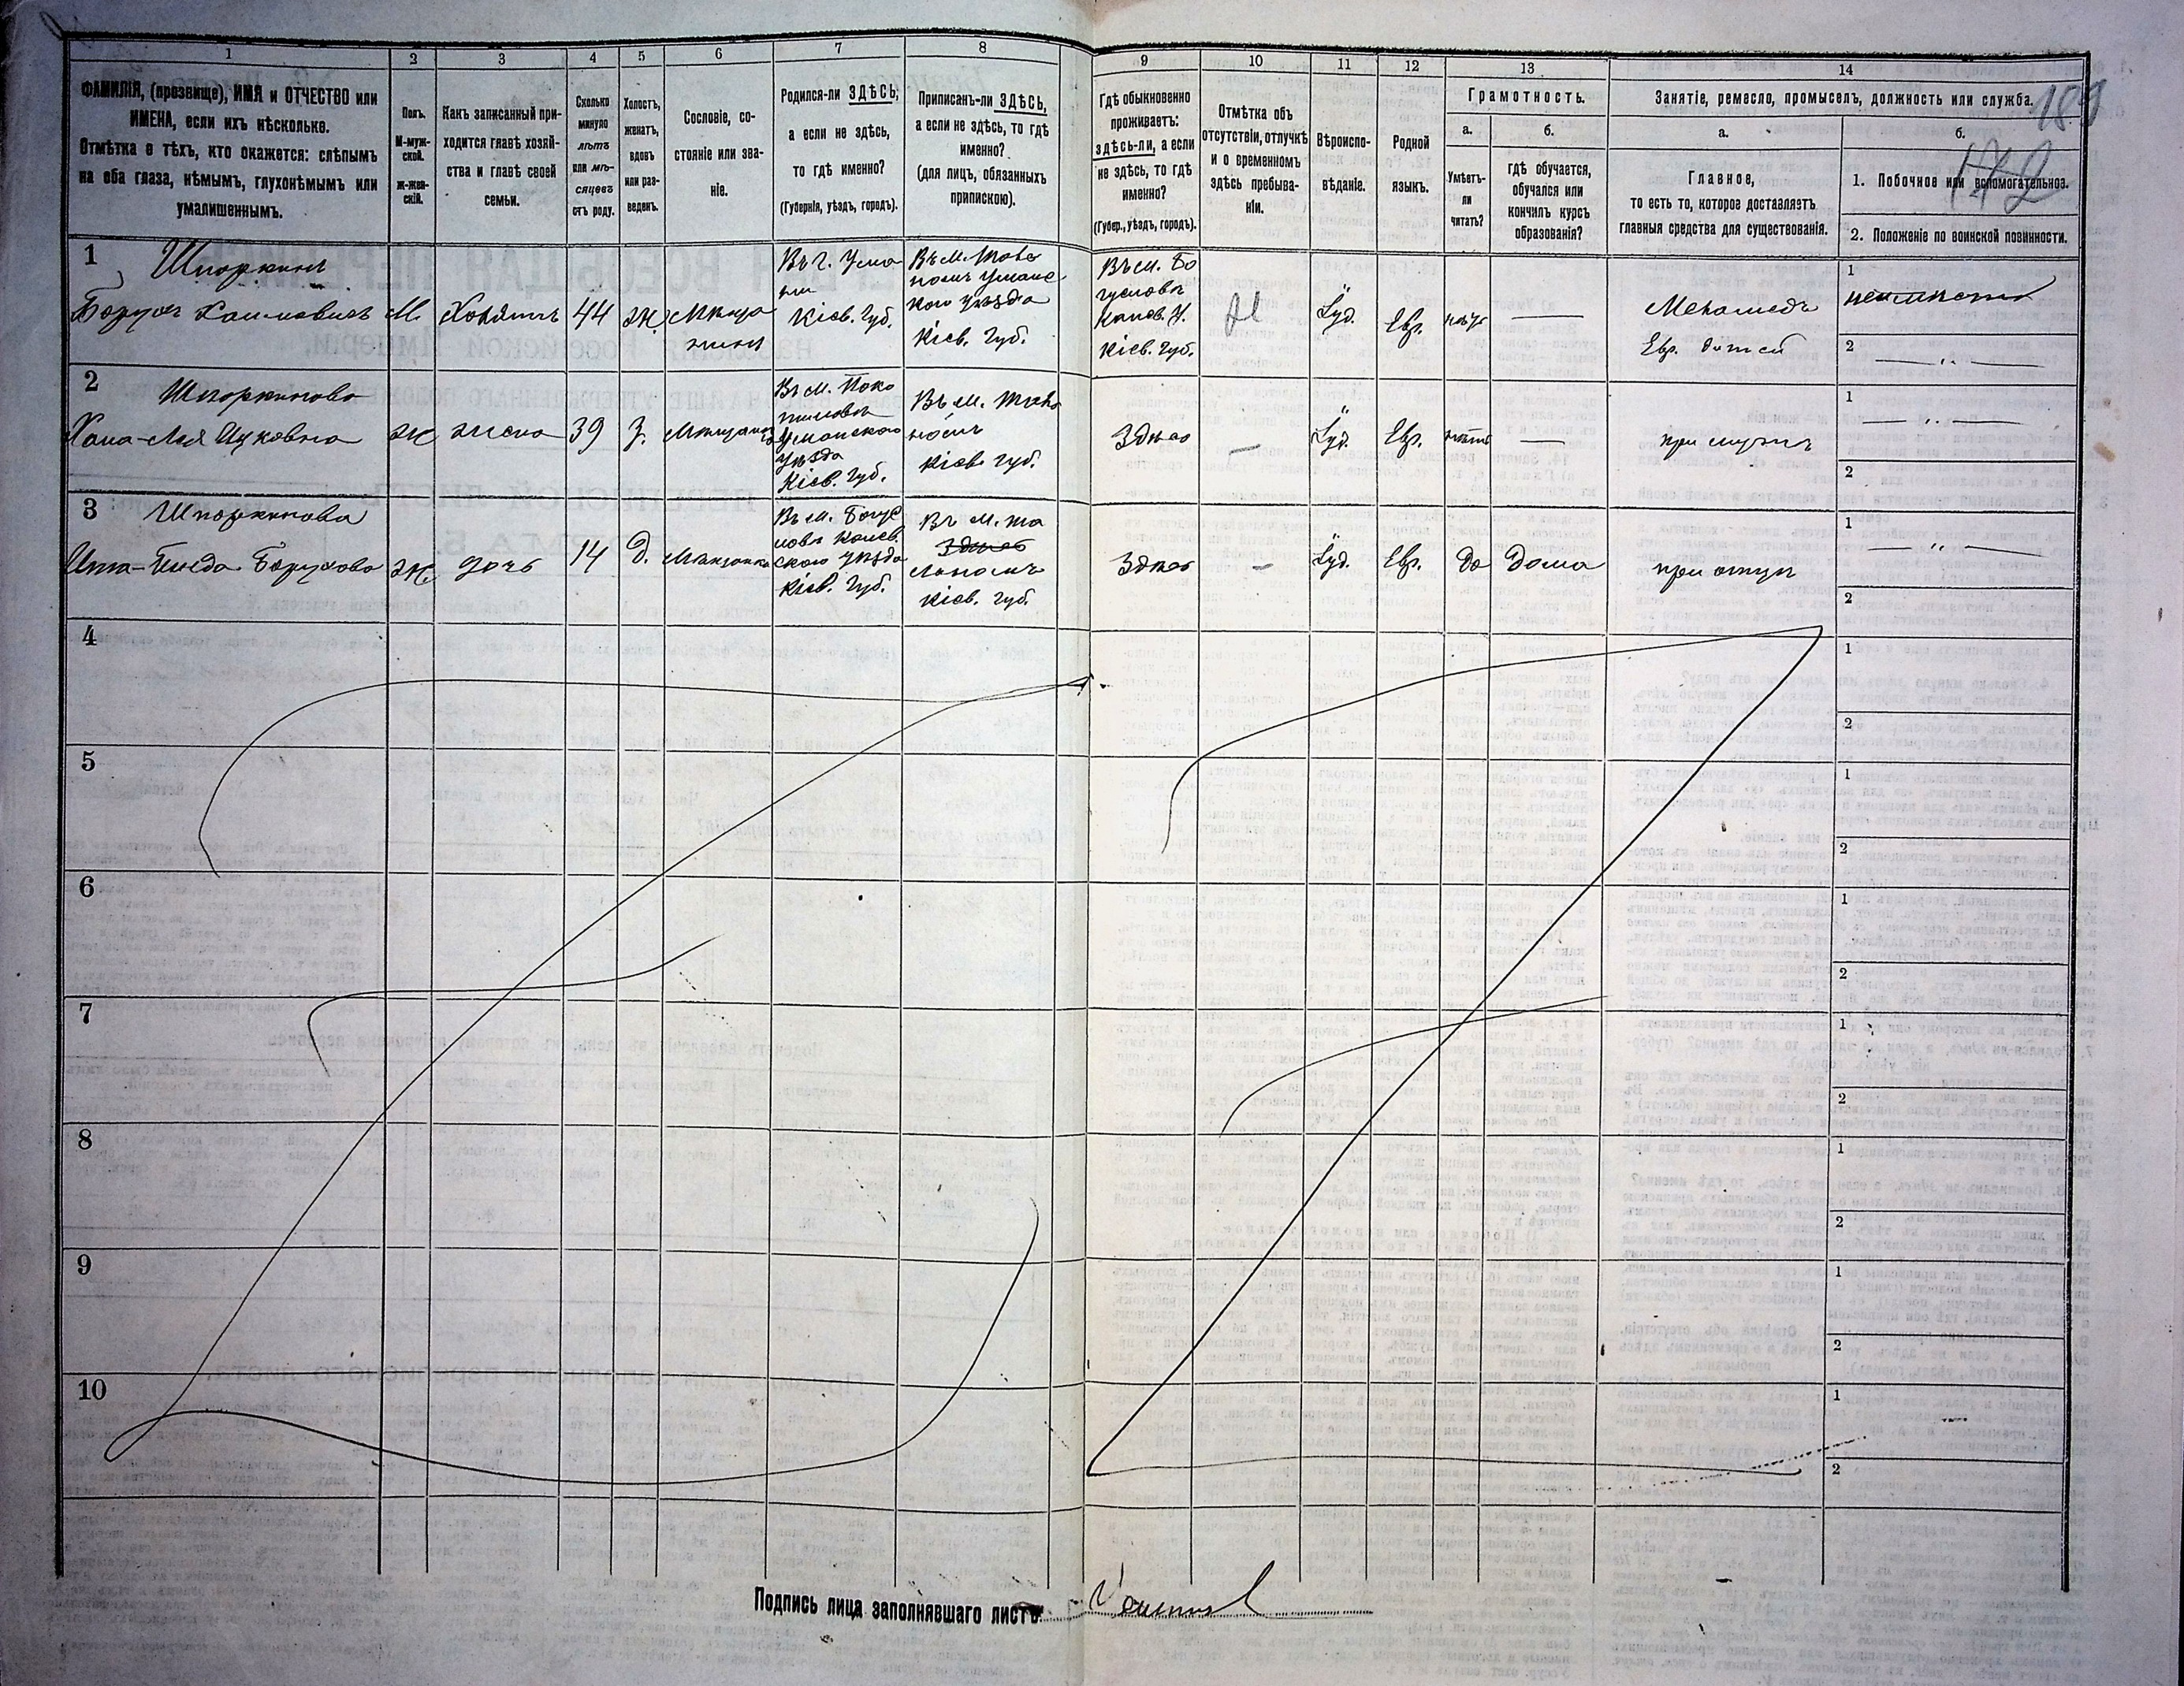 1
2
3
4
5
6
7
8
9
10
11
12
13
14
ФАМИЛІЯ, (прозвище), ИМЯ и ОТЧЕСТВО или
ИМЕНА, если ихъ нѣсколько.
Отмѣтка о тѣхъ, кто окажется: слѣпымъ
на оба глаза, нѣмымъ, глухонѣмымъ или
умалишеннымъ.
Полъ.
М-муж-
ской.
ж-жен-
скій.
Какъ записанный при-
ходится главѣ хозяй-
ства и главѣ своей
семьи.
Сколько
минуло
лѣтъ
или мѣ-
сяцевъ
отъ роду.
Холостъ,
женатъ,
вдовъ
или раз-
веденъ.
Сословіе, со-
стояніе или зва-
ніе.
Родился-ли ЗДѢСЬ,
а если не здѣсь,
то гдѣ именно?
(Губернія, уѣздъ, городъ).
Приписанъ-ли ЗДѢСЬ,
а если не здѣсь, то гдѣ
именно?
(для лицъ, обязанныхъ
припискою).
Гдѣ обыкновенно
проживаетъ:
здѣсь-ли, а если
не здѣсь, то гдѣ
именно?
(Губер., уѣздъ, городъ).
Отмѣтка объ
отсутствіи, отлучкѣ
и о временномъ
здѣсь пребыва-
ніи.
Вѣроиспо-
вѣданіе.
Родной
языкъ.
Грамотность.
а.
Умѣетъ-
ли
читать?
б.
гдѣ обучается,
обучался или
кончилъ курсъ
образованія?
Занятіе, ремесло, промыселъ, должность или служба.
189
а.
Главное,
то есть то, которое доставляетъ
главныя средства для существованія.
б.
1. Побочное или вспомогательное.
2. Положеніе по воинской повинности.
1
Шпоркинъ
Борухъ Хаимовичъ
М.
Хозяинъ
44
ж.
Мѣща
нинъ
Въ г. Ума
ни
Кіев. Губ.
Въ м.
Уманс
кого Уѣзда
Кіев. Губ.
Въ м. Бо
гуслова
Канев. У.
Кіев. Губ.
Іуд.
Евр.
Меламедъ
Евр. дѣтей
1
2
2
Шпоркинова
Хана-Лея Ицковна
ж
жена
39
З.
Мѣщанка
Въ м. Поко
тиловка
Уманского
Уѣзда
Кіев. Губ.
Въ м.
Кіев. Губ.
Здѣсь
Іуд.
Евр.
нѣтъ
при мужѣ
1
2
3
Шпоркинова
Боруховна
ж.
дочь
14
Д.
Мѣщанка
Въ м. Богус
лова Канев.
ского Уѣзда
Кіев. Губ.
Въ м.
Здѣсь
Кіев. Губ.
Здѣсь
Іуд.
Евр.
Да
Дома
при отцѣ
1
2
4
1
2
5
1
2
6
1
2
7
1
2
8
1
2
9
1
2
10
1
2
Подпись лица заполнявшаго листъ